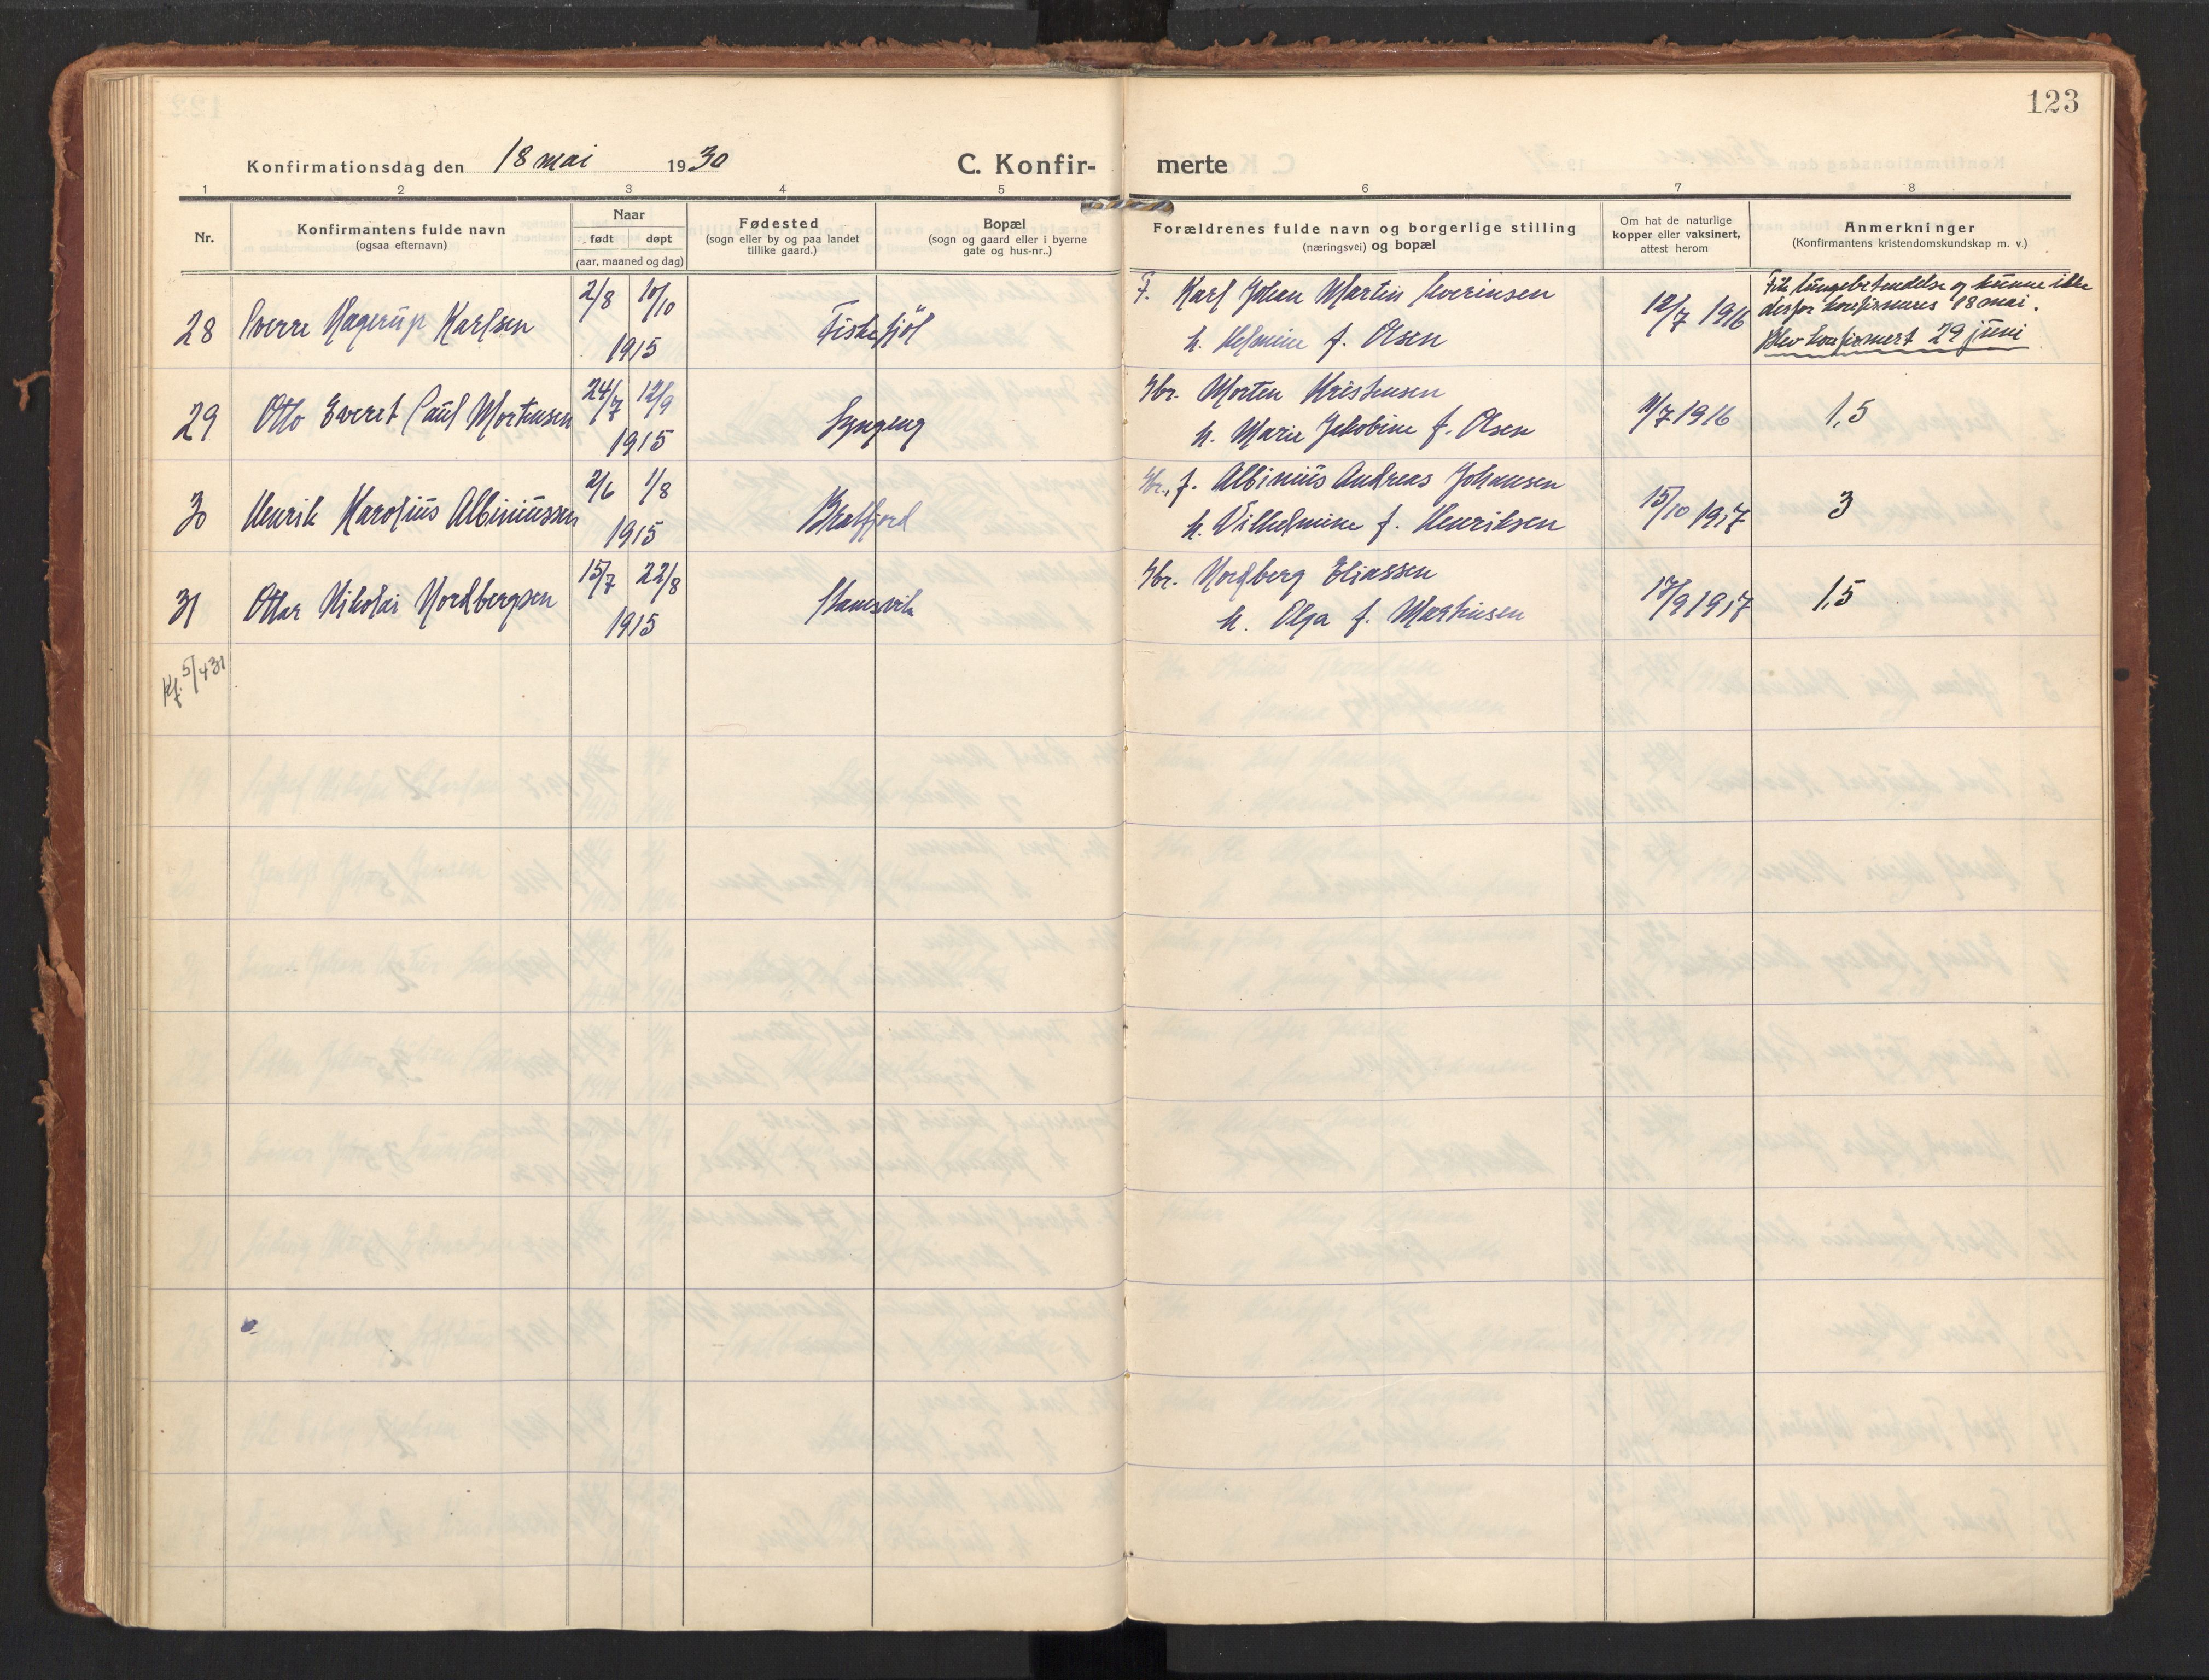 123
Konfirmationsdag den 18 mai 1930 C. Konfir- merte
1 2 3 4 5 6 7 8
Nr.
Konfirmantens fulde navn
(ogsaa efternavn)
Naar
født døpt
(aar, maaned og dag)
Fødested
(sogn eller by og paa landet
tillike gaard.)
Bopæl
(sogn og gaard eller i byerne
gate og hus-nr..)
Forældrenes fulde navn og borgerlige stilling
(næringsvei) og bopæl
Om hat de naturlige
kopper eller vaksinert,
attest herom
Anmerkninger
(Konfirmantens kristendomskundskap m. v.)
28 Sverre Hagerup Karlsen 2/8 10/10 1915 Fiskefjöl
F. Karl Johan Martin Severinsen
h. Helmine f. Olsen
12/7 1916
Fik lungebetendelse og kunne ikke
derfor konfirmeres 18 mai.
Blev konfirmert 29 juni
29 Otto Everet Paul Mortensen 24/7 12/9 1915 Lyngeng
Gbr. Morten Kristensen
h. Marie Jakobine f. Olsen
11/7 1916 1,5
30 Henrik Karolius Albiniussen 2/6 1/8 1915 Bratfjord
Gbr., f. Albinius Andreas Johansen
h. Vilhelmine f. Henriksen
15/10 1917 3
31 Ottar Nikolai Nordbergsen 15/7 22/8 1915 Stamsvik
Gbr. Nordberg Eliassen
h. Olga f. Martinsen
17/9 1917 1,5
Kf. 5/4 31